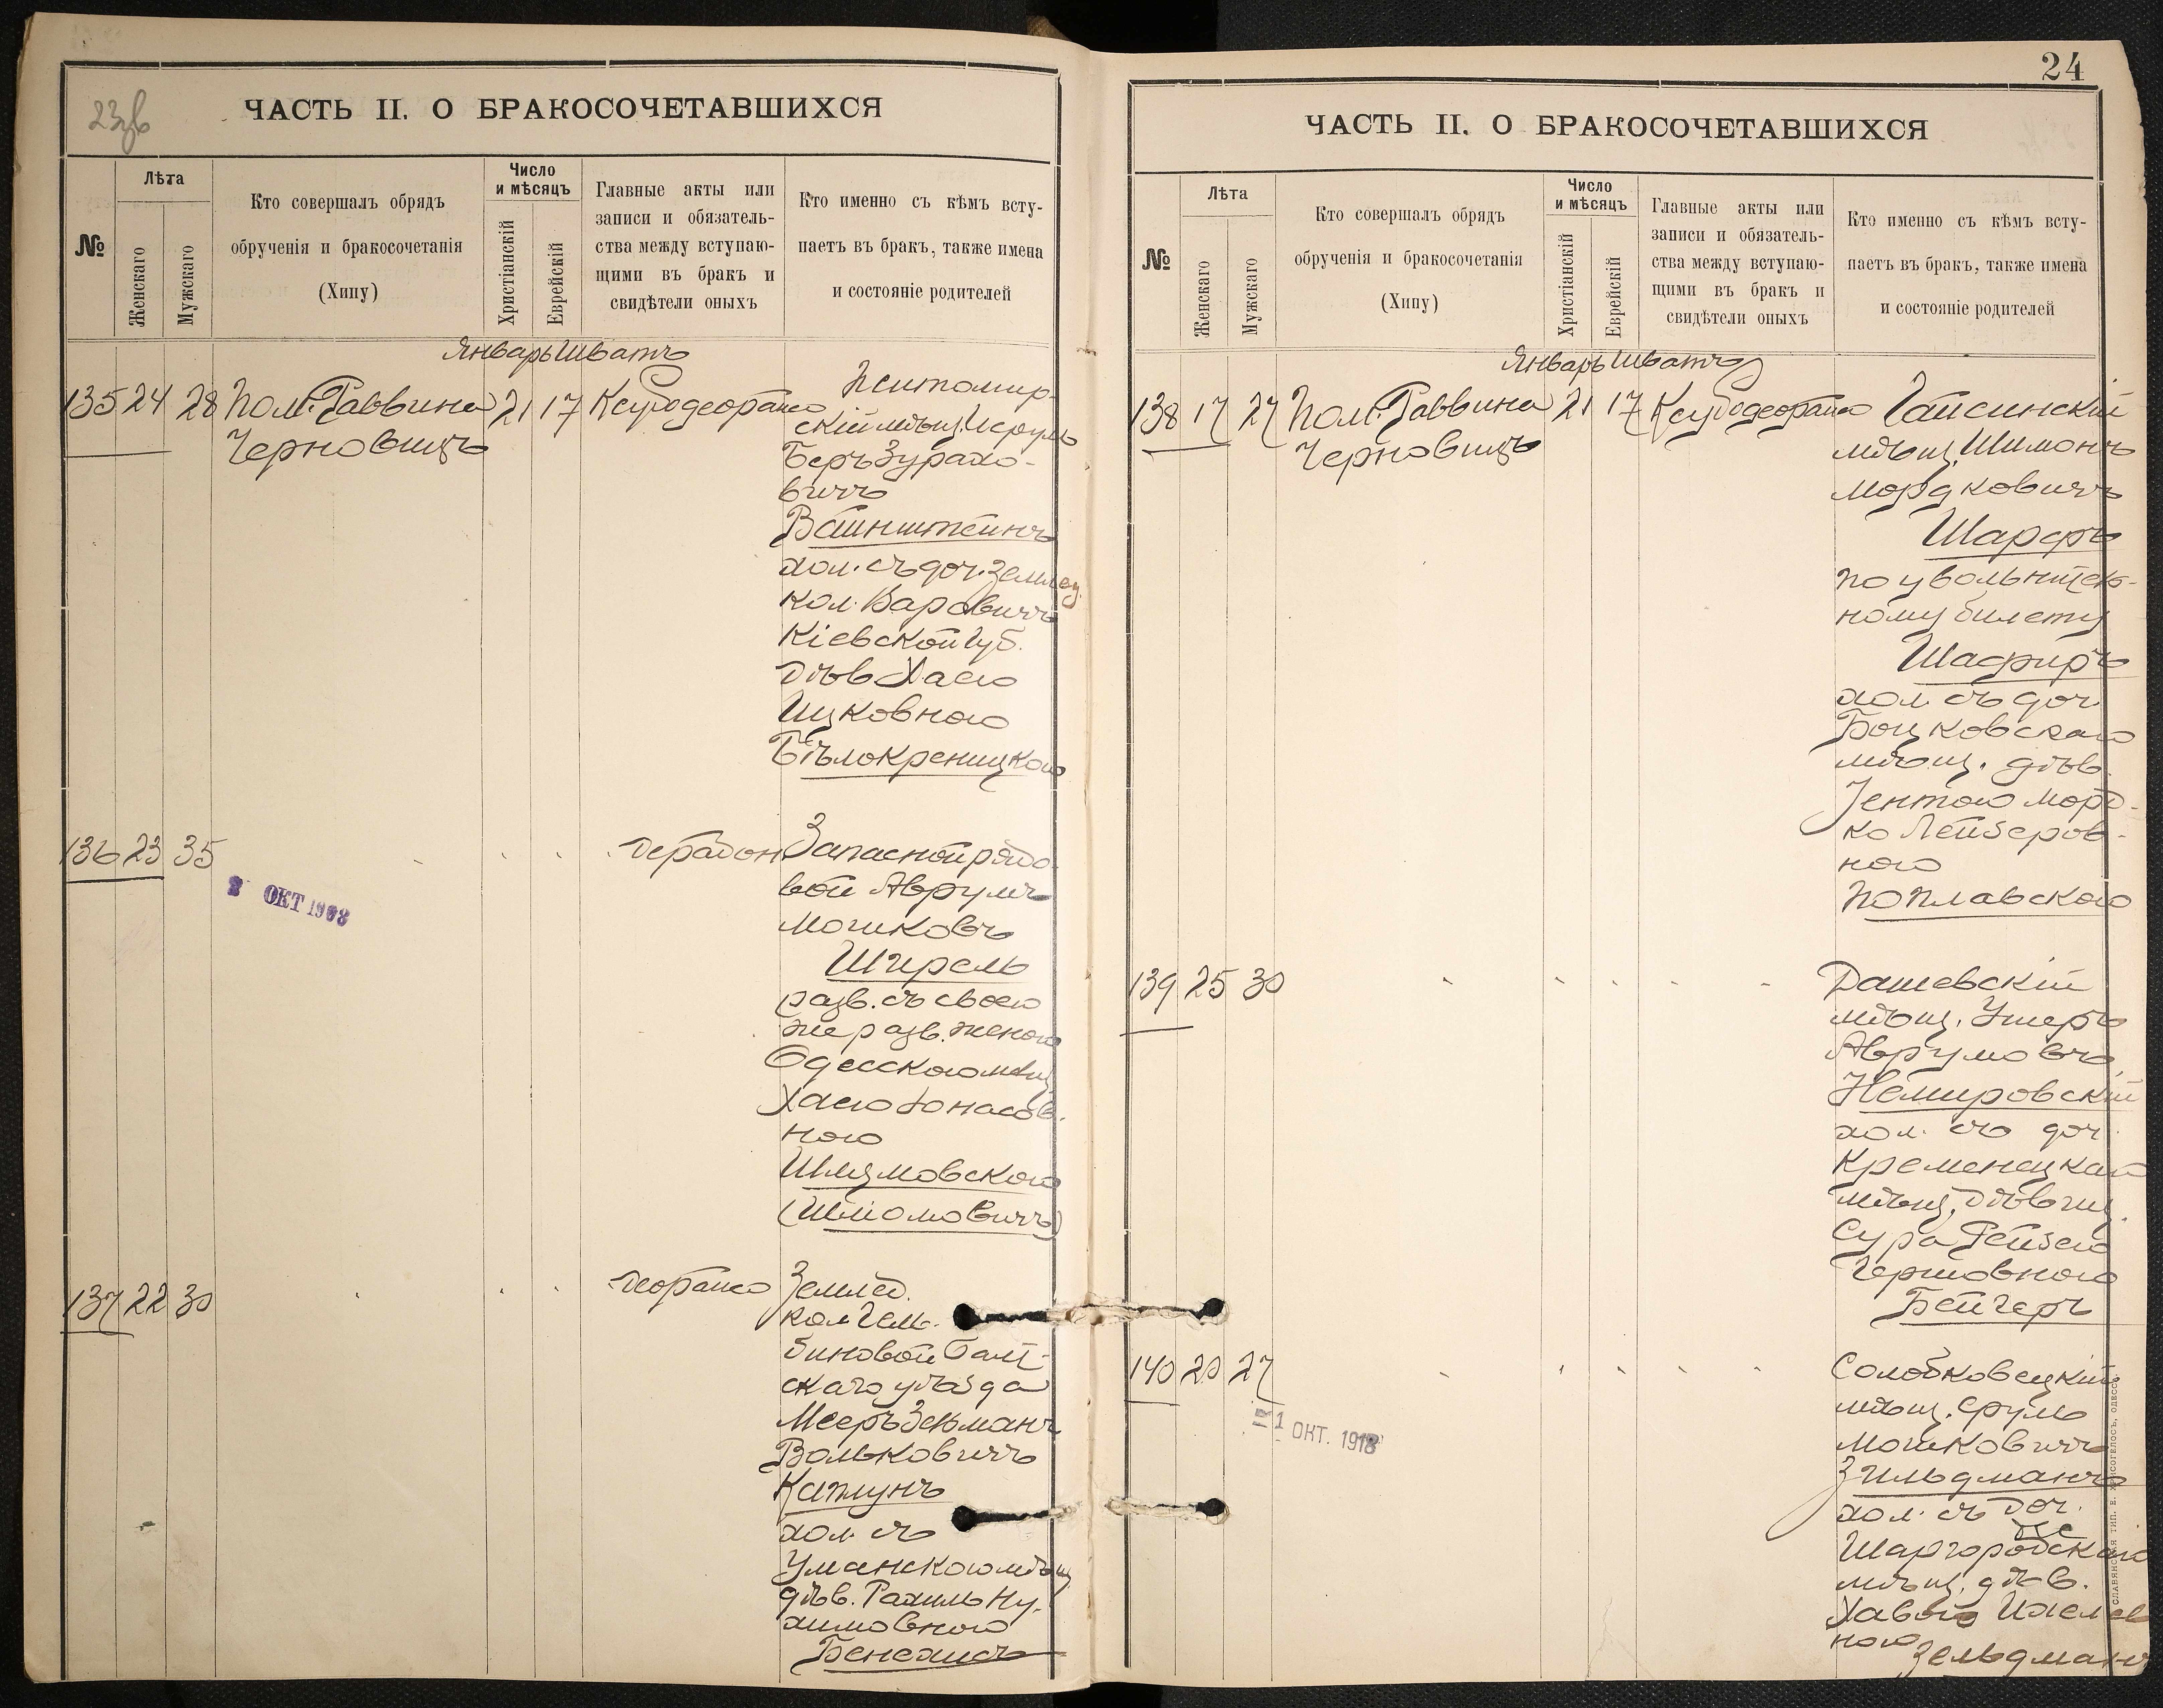 23об
ЧАСТЬ II. О БРАКОСОЧЕТАВШИХСЯ
№
Лѣта
Женскаго
Мужскаго
Кто совершалъ обрядъ
обрученія и бракосочетанія
(Хипу)
Число
и мѣсяцъ
Христіанскій
Еврейскій
Главные акты или
записи и обязатель-
ства между вступаю-
щими въ бракъ и
свидѣтели оныхъ
Кто именно съ кѣмъ всту-
паетъ въ бракъ, также имена
и состояніе родителей
Январь Шватъ
135 24 28 Пом. Раввина 21 17
Черновицъ
Житомир-
скій мѣщ. Исруль
Беръ Зурахо-
вичъ
Вайнштейнъ
хол. съ доч. землед.
кол.
Кіевской губ.
дѣв. Хаею
Ицковною
Бѣлокреницкою
136 23 35
2 ОКТ 1908
Запасной рядо-
вой Аврумъ
Мошковъ
Шпрель
разв. съ своею
же разв. женою
Одесскою мѣщ.
Хаею Іонасов-
ною
(Шліомовичъ)
137 22 30
Землед.
кол.
Балт-
скаго уѣзда
Мееръ Зельманъ
Вольковичъ
Каплунъ
хол. съ
Уманскою мѣщ.
дѣв. Рахиль Ну-
химовною
Бенехисъ
24
ЧАСТЬ II. О БРАКОСОЧЕТАВШИХСЯ
№
Лѣта
Женскаго
Мужскаго
Кто совершалъ обрядъ
обрученія и бракосочетанія
(Хипу)
Число
и мѣсяцъ
Христіанскій
Еврейскій
Главные акты или
записи и обязатель-
ства между вступаю-
щими въ бракъ и
свидѣтели оныхъ
Кто именно съ кѣмъ всту-
паетъ въ бракъ, также имена
и состояніе родителей
Январь Шватъ
138 17 27 Пом. Раввина 21 17
Черновицъ
Гайсинскій
мѣщ. Шимонъ
Мордковичъ
Шарфъ
по увольнитель-
ному билету
Шафиръ
хол. съ доч.
мѣщ. дѣв.
ІентоюМорд-
ко Лейзеров-
ною
Поплавскою
139 25 30
Дашевскій
мѣщ. Ушеръ
Аврумовъ
Немировскій
хол. съ доч.
Кременецкаго
мѣщ. дѣвиц.
Сура Рейзею
Гершовною
Бейгеръ
140 20 27
1 ОКТ. 1918
Солобковецкій
мѣщ. Сруль
Мошковичъ
Зильдманъ
хол. съ доч.
Шаргородскаго
мѣщ. дѣв.
Хавою
ною
Зельдманъ
СЛАВЯНСКАЯ ТИП. Е. ХРИСОГЕЛОСЪ, ОДЕССА